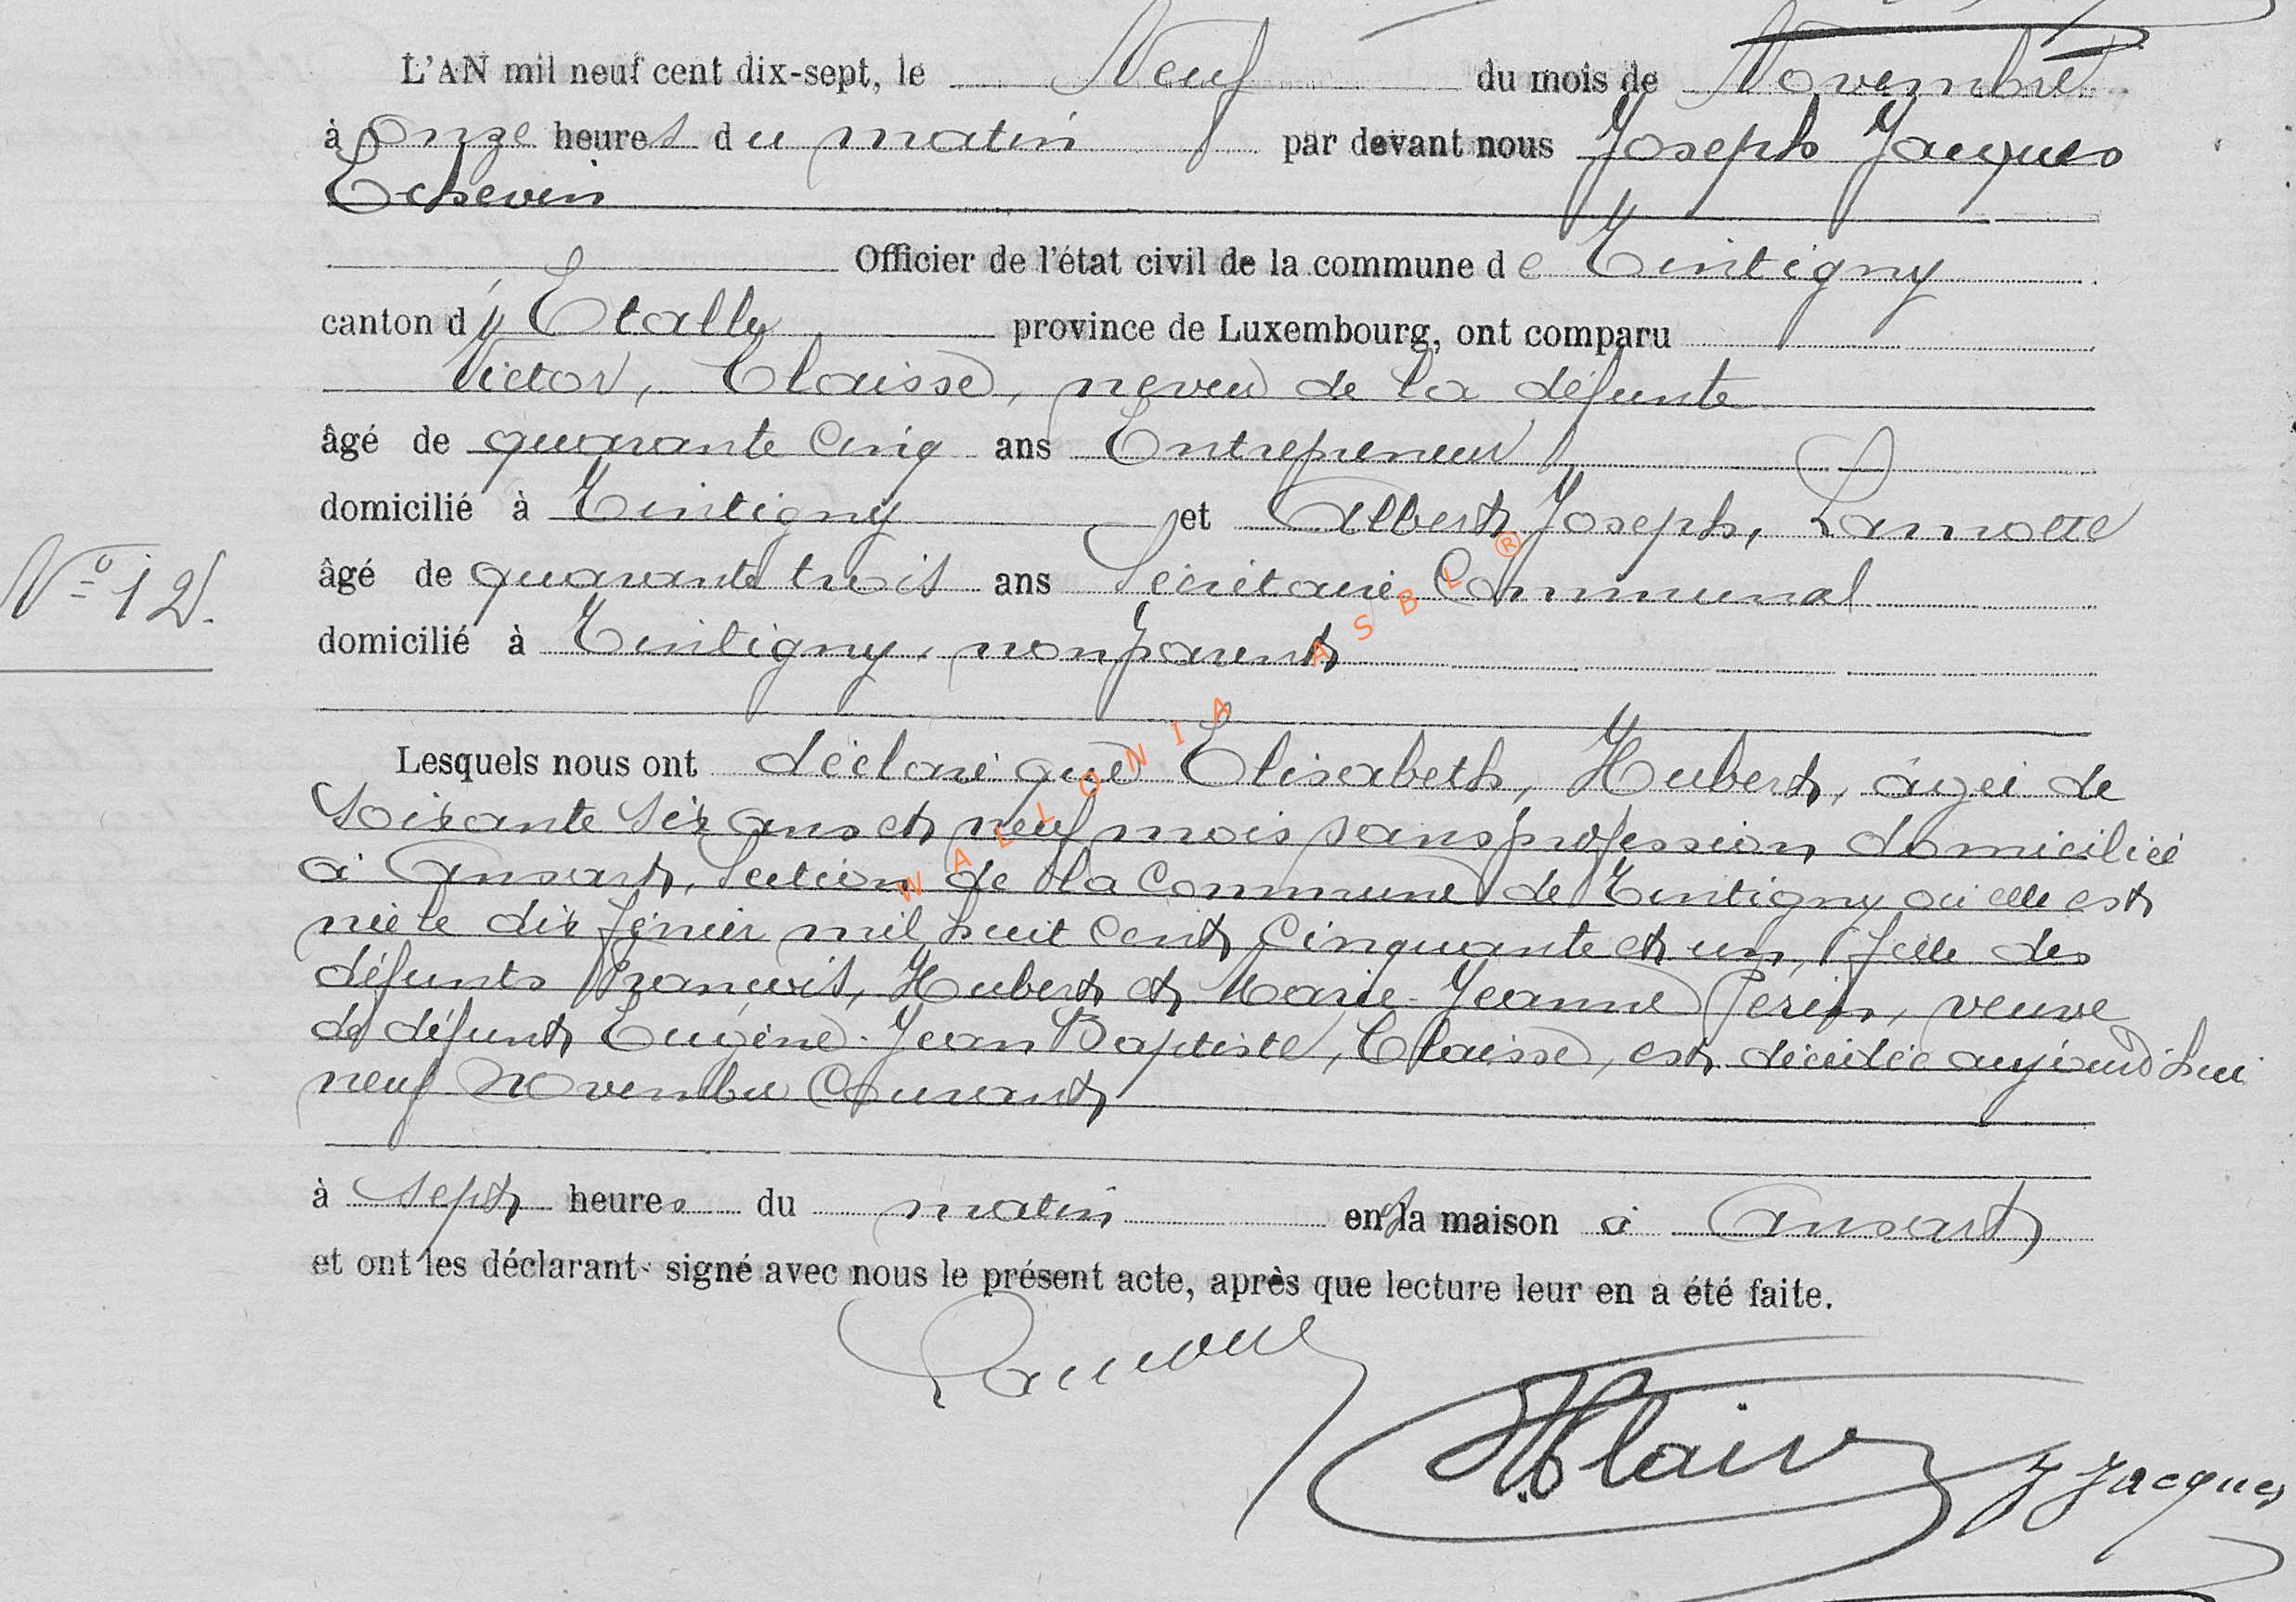 L'AN mil neuf cent dix-sept, le Neuf du mois de Novembre
à onze heures du matin par devant nous Joseph Jacques
Echevin
Officier de l'état civil de la commune de Tintigny
canton d'Etalle province de Luxembourg, ont comparu
Victor, Claisse, neveu de la défunte
âgé de quarante cinq ans Entrepreneur
domicilié à Tintigny et Albert Joseph, Lamotte
âgé de quarante trois ans Secrétaire Communal
N° 12.
domicilié à Tintigny, non parent
Lesquels nous ont déclaré que Elisabeth, Hubert, âgée de
soixante six ans et neuf mois sans profession domiciliée
à Ansart, Section de la Commune de Tintigny où elle est
née le dix février mil huit cent cinquante et un, fille des
défunts François, Hubert et Marie-Jeanne Perin, veuve
de défunt Eugène-Jean Baptiste, Claisse, est décédée aujourd'hui
neuf Novembre Courant
à sept heures du matin en sa maison à Ansart
et ont les déclarant signé avec nous le présent acte, après que lecture leur en a été faite.
Lamotte
J Jacques
WALLONIA ASBL ®